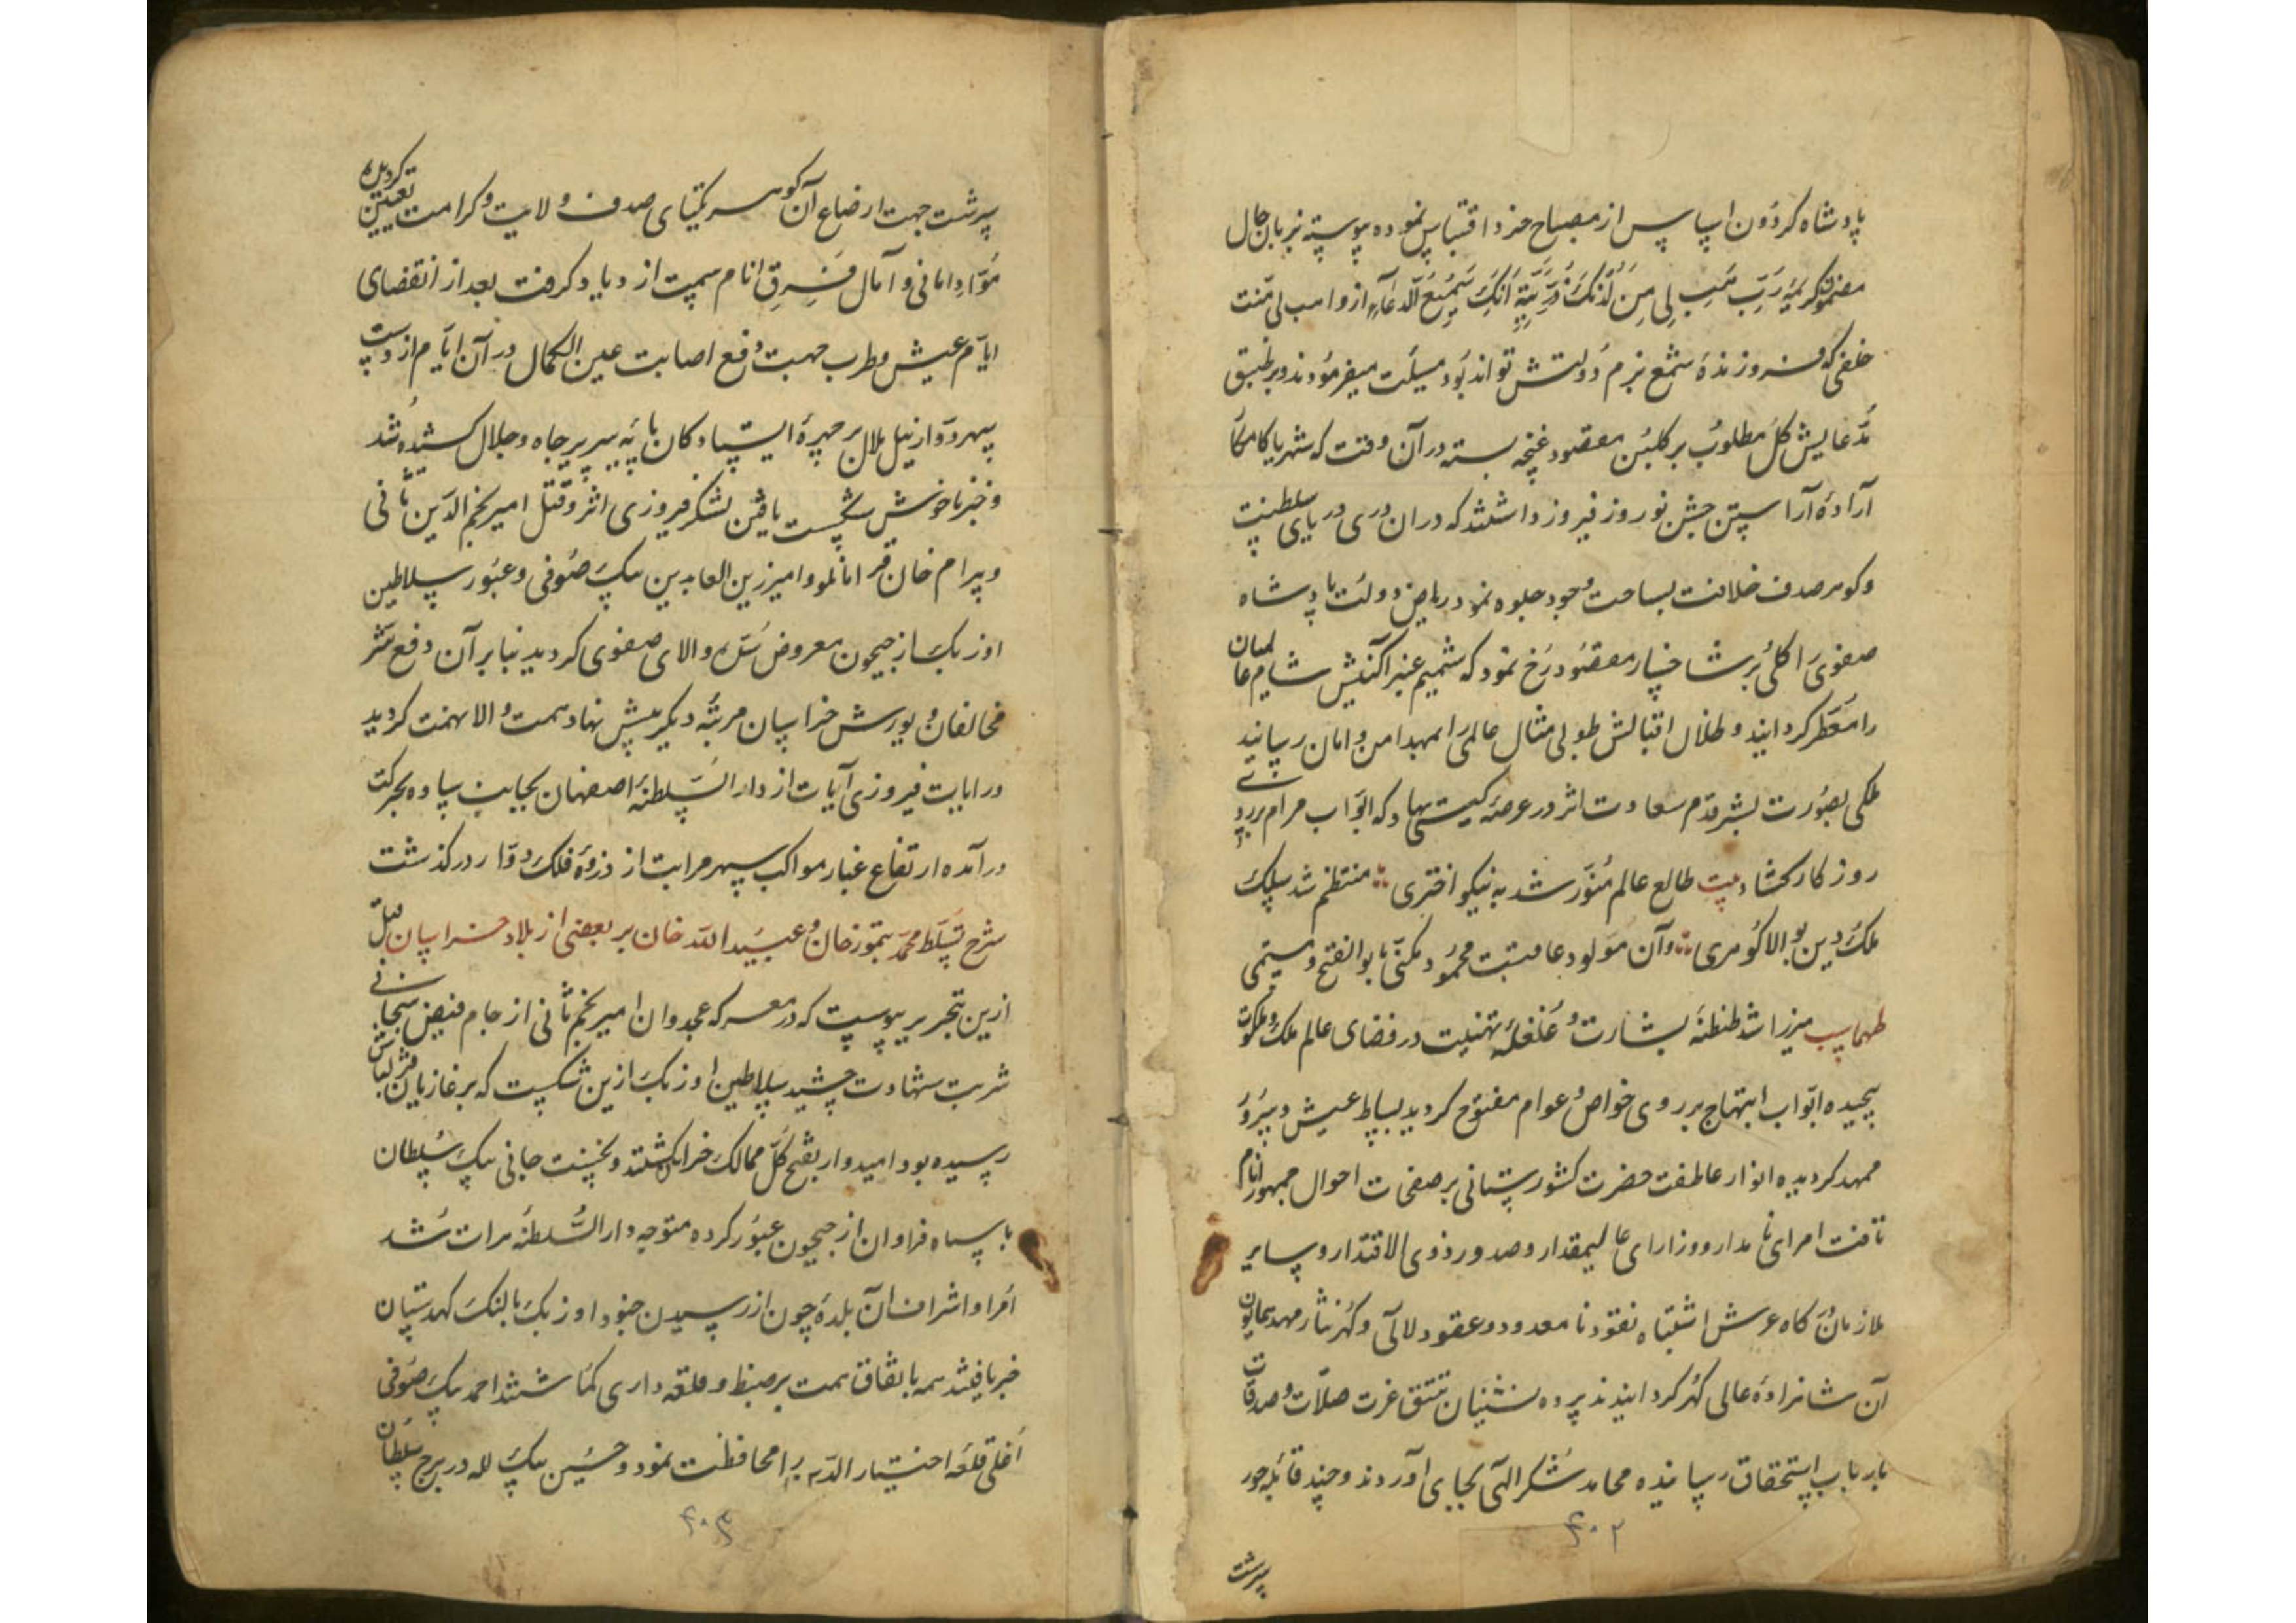 پادشاه کردون اساس از مصباح خرد اقتباس نموده پیوسته بزبان حال
مضمون کریمه رَبِّ هَب لِی مِن لَدُنکَ ذُرِّیَّةً اِنَّکَ سَمِیعُ الدُّعَآءِ از واهب بی منت
خلفی که فروزندهٔ شمع بزم دولتش تواند بود مسئلت میفرمودند و بر طبق
مدعایش کل مطلوب بر کلبن مقصود غنچه بسته در آن وقت که شهریار کامکار
ارادهٔ آراستن جشن نوروز فیروز داشتند که در ان دری دریای سلطنت
و کوهر صدف خلافت بساحت وجود جلوه نمود ریاض دولت پادشاه
صفوی را کلی بر شاخسار مقصود رخ نمود که شمیم عنبر آکنش مشام عالمیان
را معطر کردانید و ظلال اقبالش طوبی مثال عالمی را بمهد امن و امان رسانید
ملکی بصورت بشر قدم سعادت اثر در عرصهٔ کیتی نهاد که ابواب مرام بر روی
روزکار کشاد بیت طالع عالم منور شد به نیکو اختری منتظم شد سلک
ملک دین بوالا کوهری و آن مولود عاقبت محمود مکنی بابوالفتح و مسمی
طهماسب میرزا شد طنطنهٔ بشارت و غلغلهٔ تهنیت در فضای عالم ملک و ملکوت
پیچیده ابواب ابتهاج بر روی خواص و عوام مفتوح کردید بساط عیش و سرور
ممهد کردیده انوار عاطفت حضرت کشورستانی بر صفحات احوال جمهور انام
تافت امرای نامدار و وزارای عالیمقدار و صدور ذوی الاقتدار و سایر
ملازمان درکاه عرش اشتباه نقود نامعدود و عقود لالی و کهر نثار مهد همایون
آن شاهزادهٔ عالی کهر کردانیدند پرده نشینان تتق عزت صلات و صدقات
بارباب استحقاق رسانیده محامد شکر الهی بجای آوردند و چند قابلهٔ حور
۴۰۲
سرشت
سرشت جهت ارضاع آن کوهر یکتای صدف ولایت و کرامت تعیین کردیده
مواد امانی و آمال فرق انام سمت ازدیاد کرفت بعد از انقضای
ایام عیش و طرب جهت دفع اصابت عین الکمال در آن ایام از دست
سپهر دوار نیل ملال بر چهرهٔ ایستادکان پایهٔ سریر جاه و جلال کشیده شد
و خبر ناخوش شکست یافتن لشکر فیروزی اثر و قتل امیر نجم الدین ثانی
و بیرام خان قرامانلو و امیر زین العابدین بیک صفوی و عبور سلاطین
اوزبک از جیحون معروض سدهٔ والای صفوی کردید بنابر آن دفع شر
مخالفان و یورش خراسان مرتبهٔ دیکر پیش نهاد همت والا نهمت کردید
و رایات فیروزی آیات از دار السلطنهٔ اصفهان بجانب ساوه بحرکت
درآمده ارتفاع غبار مواکب سپهر مراتب از ذروهٔ فلک دوار در کذشت
شرح تسلط محمد تیمور خان و عبید الله خان بر بعضی از بلاد خراسان
ازین تحریر پیوست که در معرکه عجدوان امیر نجم ثانی از جام فیض سبحانی
شربت شهادت چشید سلاطین اوزبک ازین شکست که بر غازیان قزلباش
رسیده بود امیدوار بفتح کل ممالک خراسان کشتند و نخست جانی بیک سلطان
با سپاه فراوان از جیحون عبور کرده متوجه دار السلطنهٔ هرات شد
امرا و اشراف ان بلده چون از رسیدن جنود اوزبک بالنک کهدستان
خبر یافتند همه باتفاق همت بر ضبط و قلعه داری کماشتند احمد بیک صوفی
اغلی قلعه اختیار الدین را محافظت نمود و حسین بیک لله در برج سلطان
۴۰۳